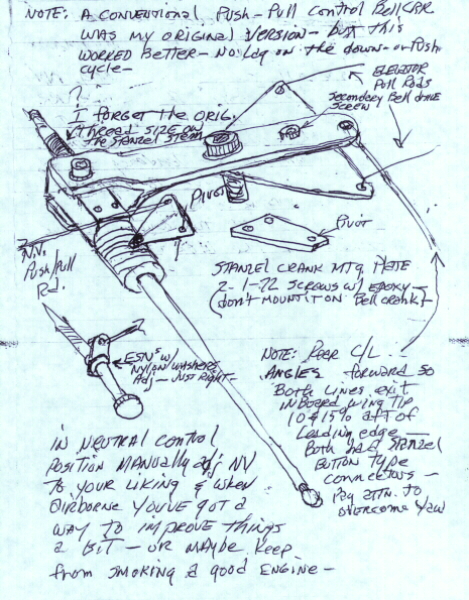 NOTE: A CONVENTIONAL PUSH-PULL CONTROL BELLCRK
WAS MY ORIGINAL VERSION - BUT THIS
WORKED BETTER - NO LAG ON THE DOWN - OR PUSH
CYCLE -
?
I FORGET THE ORIG.
THREAD SIZE ON
THE STANZEL STEM
ELEVATOR
PULL RODS
SECONDARY BELL
SCREW
PIVOT
PIVOT
N.V.
PUSH/PULL
Rd.
STANZEL CRANK MTG. PLATE
2- 1-72 SCREWS W/ EPOXY -
DON'T MOUNT IT ON BELLCRANK!
ESN'S W/
NYLON WASHERS
ADJ - JUST RIGHT -
NOTE: REER C/L
ANGLES FORWARD SO
BOTH LINES EXIT
INBOARD WING TIP
10 & 15% AFT OF
LEADING EDGE -
BOTH HAD STANZEL
BUTTON TYPE
CONNECTORS -
PAY ATTN. TO
OVERCOME YAW
IN NEUTRAL CONTROL
POSITION MANUALLY ADJ NV
TO YOUR LIKING & WHEN
AIRBORNE YOU'VE GOT A
WAY TO IMPROVE THINGS
A BIT - OR MAYBE KEEP
FROM SMOKING A GOOD ENGINE -